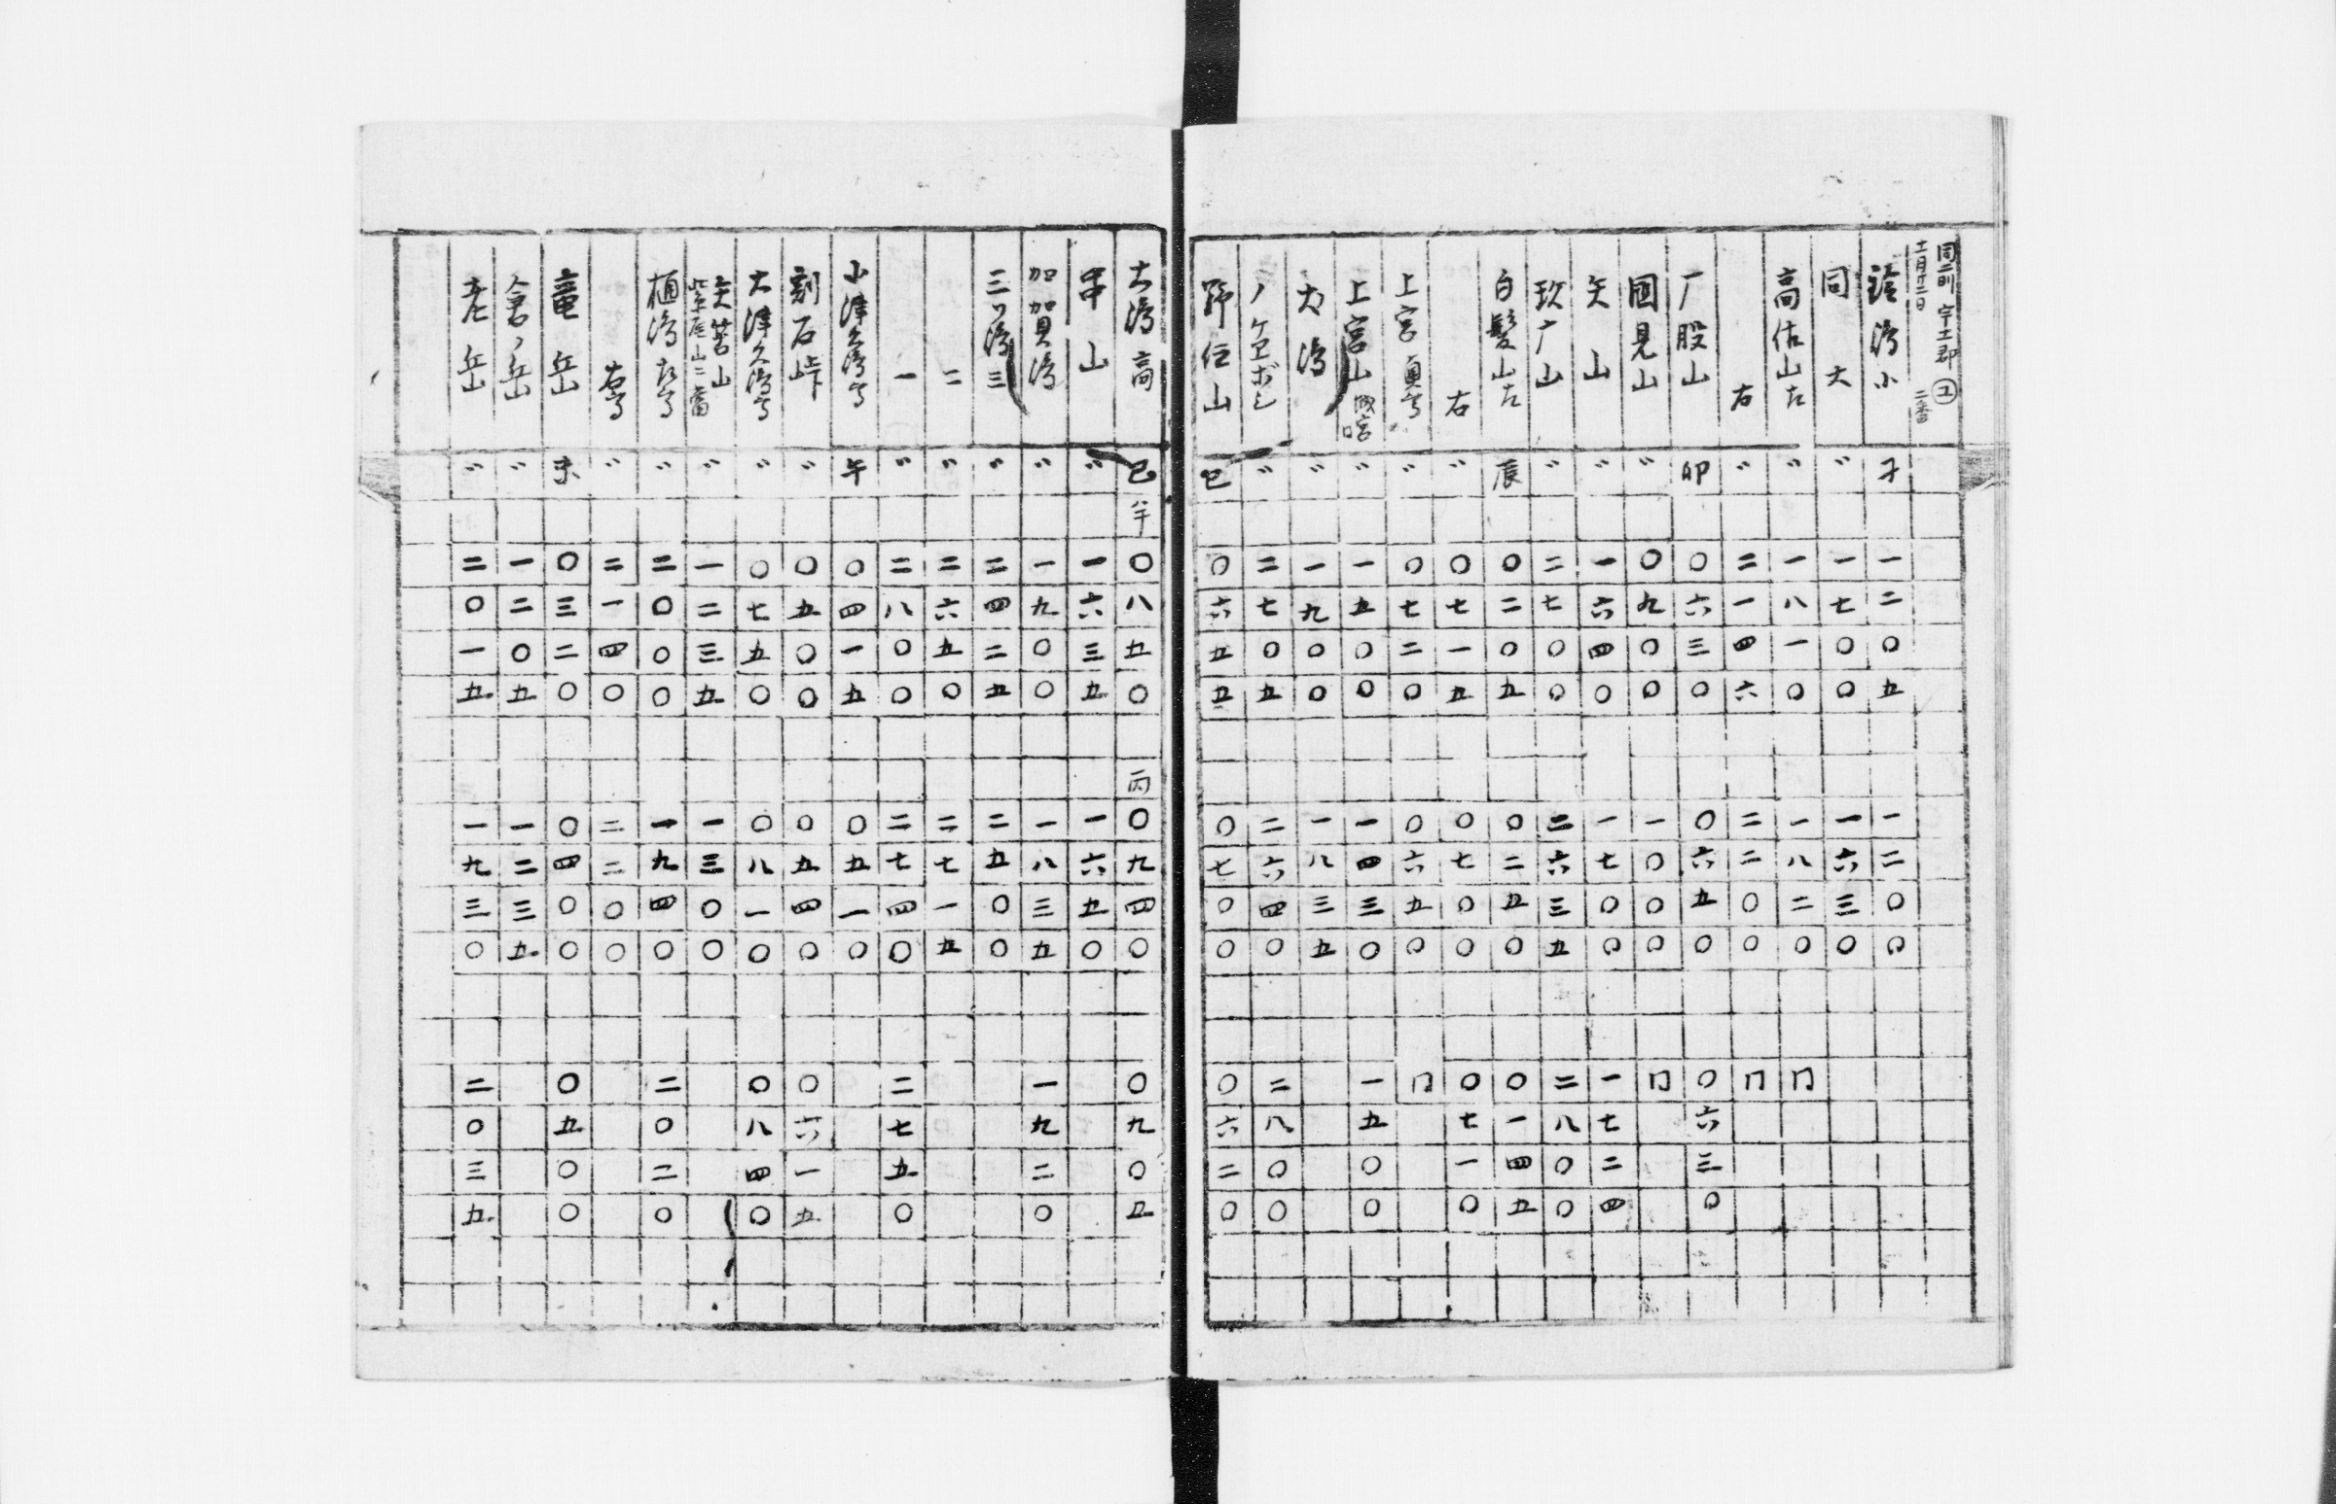 宇土郡 ユ
十一月廿二日 二番
嶋小 一二〇五 一二〇〇
同大 〃 一七〇〇 一六三〇
高佐山左 〃 一八一〇 一八二〇 冂
右 〃 二一四六 二二〇〇 冂
厂股山 卯 〇六三〇 〇六五〇 〇六三〇
國見山 〃 〇九〇〇 一〇〇〇 冂
矢山 〃 一六四〇 一七〇〇 一七二四
玖广山 〃 二七〇〇 二六三五 二八〇〇
白髪山左 辰 〇二〇五 〇二五〇 〇一四五
右 〃 〇七一五 〇七〇〇 〇七一〇
上宮 〃 〇七二〇 〇六五〇 冂
上宮山 〃 一五〇〇 一四三〇 一五〇〇
大嶋 〃 一九〇〇 一八三五
ノケヱボシ 〃 二七〇五 二六四〇 二八〇〇
野位山 巳 〇六五五 〇七〇〇 〇六二〇
大嶋高 巳 半 〇八五〇 丙 〇九四〇 〇九〇五
串山 〃 一六三五 一六五〇
加賀嶋 〃 一九〇〇 一八三五 一九二〇
三ツ嶋三 〃 二四二五 二五〇〇
二 〃 二六五〇 二七一五
一 〃 二八〇〇 二七四〇 二七五〇
小津久嶋 午 〇四一五 〇五一〇
割石峠 〃 〇五〇〇 〇五四〇 〇六一五
大津久嶋 〃 〇七五〇 〇八一〇 〇八四〇
矢筈山 柴尾山ニ當 〃 一二三五 一三〇〇
樋嶋 〃 二〇〇〇 一九四〇 二〇二〇
右 〃 二一四〇 二二〇〇
竜岳 未 〇三二〇 〇四〇〇 〇五〇〇
倉ノ岳 〃 一二〇五 一二三五
老岳 〃 二〇一五 一九三〇 二〇三五